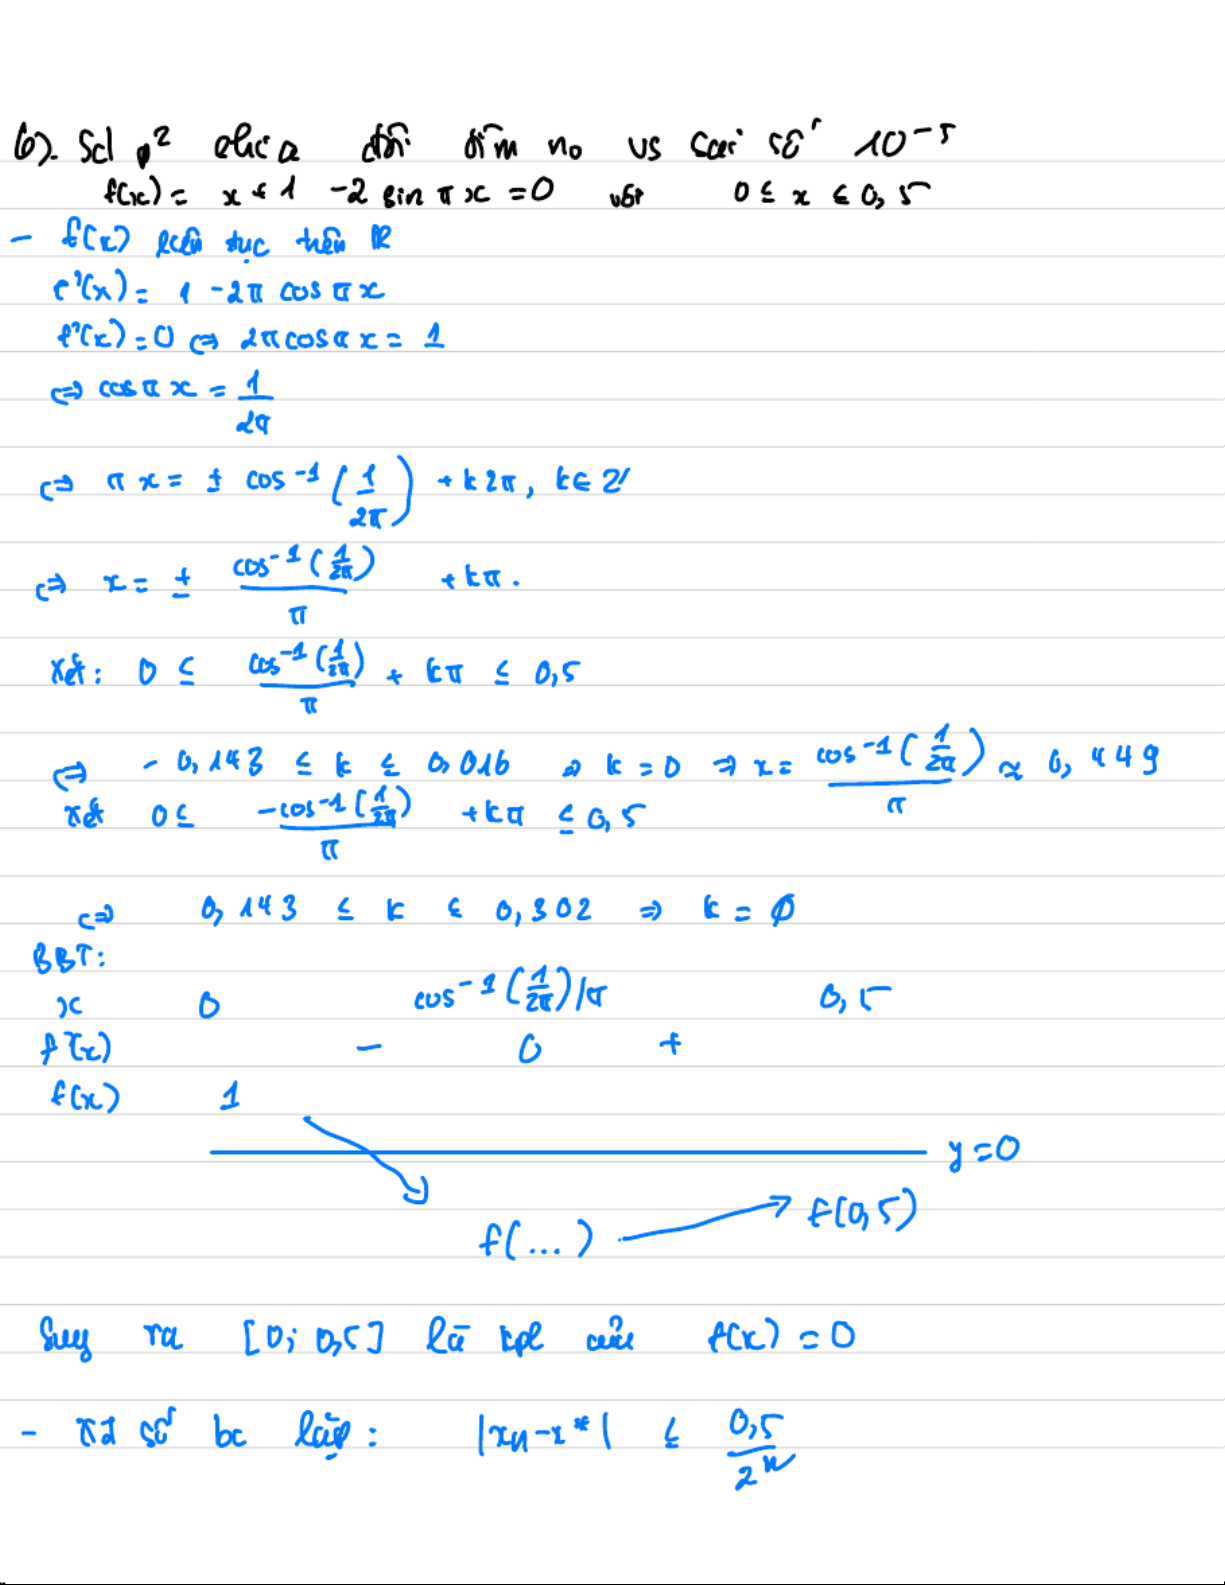 6). Sd p² chia đôi tìm no vs sai số 10⁻⁵
f(x) = x + 1 - 2 sin πx = 0 với 0 ≤ x ≤ 0,5
- f(x) liên tục trên R
f'(x) = 1 - 2π cos πx
f'(x) = 0 ⇔ 2π cos πx = 1
⇔ cos πx = 1/2π
⇔ πx = ± cos⁻¹(1/2π) + k2π, k ∈ Z
⇔ x = ± cos⁻¹(1/2π)/π + kπ.
Xét: 0 ≤ cos⁻¹(1/2π)/π + kπ ≤ 0,5
⇔ - 0,143 ≤ k ≤ 0,016 ⇒ k = 0 ⇒ x = cos⁻¹(1/2π)/π ≈ 0,449
Xét 0 ≤ -cos⁻¹(1/2π)/π + kπ ≤ 0,5
⇔ 0,143 ≤ k ≤ 0,302 ⇒ k = Ø
BBT:
x 0 cos⁻¹(1/2π)/π 0,5
f'(x) - 0 +
f(x) 1
y = 0
f(...) f(0,5)
Suy ra [0; 0,5] là kpl của f(x) = 0
- Xđ số bc lặp: |xn - x*| ≤ 0,5/2ⁿ